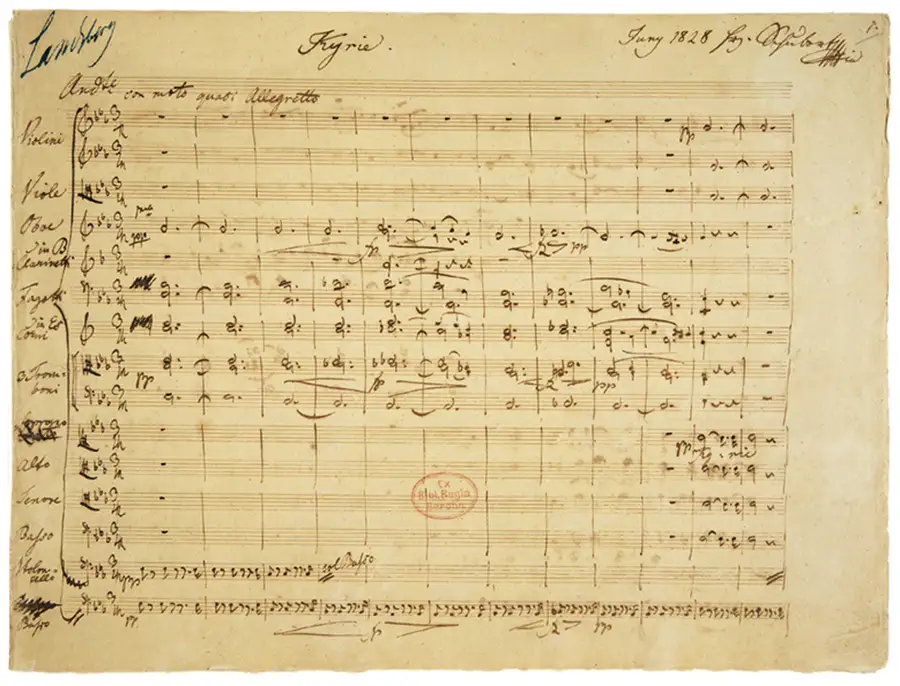 Landsberg
Kyrie.
Juny 1828 frz. Schubert
1.
And.te con moto quasi Allegretto
Violini
pp
Viole
Oboe
pp
in B
Clarinetti
Fagotti
in Es
Corni
3 Trom-
boni
pp
Soprano
pp
Ky-rie
Alto
Tenore
EX
Bibl. Regia
Berolin.
Basso
Violon-
cello
pp
col Basso
Basso
pp